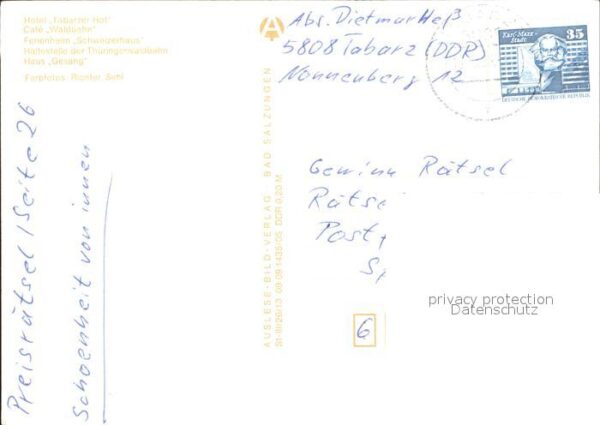 Hotel „Tabarzer Hof"
Café „Waldbahn"
Ferienheim „Schweizerhaus"
Haltestelle der Thüringerwaldbahn
Haus „Gesang"
Farbfotos: Richter, Suhl
Preisrätsel / Seite 26
Schoenheit von innen
A
AUSLESE-BILD-VERLAG · BAD SALZUNGEN
08 09 1435/05 DDR 0,20 M
Abs. Dietmar Heß
5808 Tabarz (DDR)
Nonnenberg 12
Karl-Marx-
Stadt
35
DEUTSCHE DEMOKRATISCHE REPUBLIK
Gewinn Rätsel
Rätse
Post
S
6
privacy protection
Datenschutz